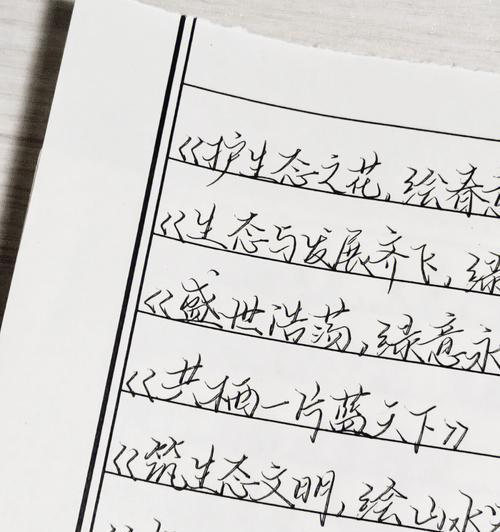 《护生态之花，绘春意
《生态与发展齐飞，绿
《盛世浩荡，绿意永
《共栖一片蓝天下》
《筑生态文明，绘山水